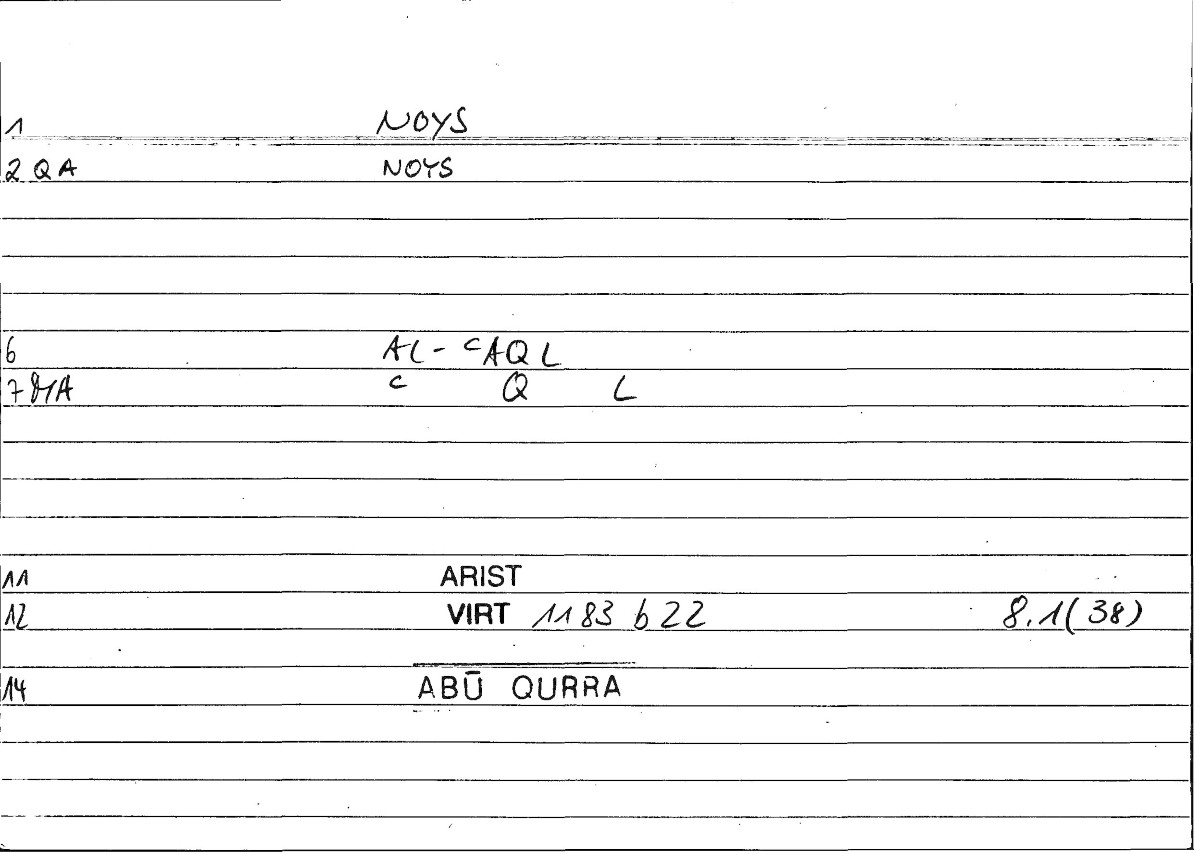 1 NOYS
2 QA NOYS
6 AL-ᶜAQL
7 MA ᶜ Q L
11 ARIST
12 VIRT 1183 b 22 8.1(38)
14 ABŪ QURRA